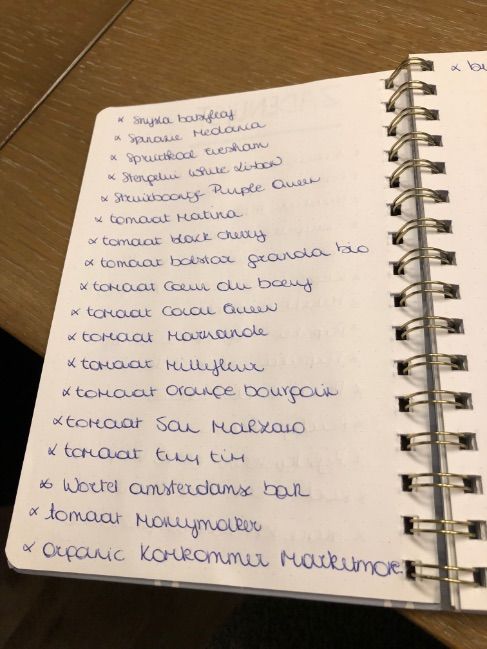 Snijsla babyleaf
Spinazie Medania
Spruitkool Evesham
Stengelui White Lisbon
Struikboontje Purple Queen
tomaat Matina
tomaat black cherry
tomaat balstar granola bio
tomaat Coeur du boeuf
tomaat Coral Queen
tomaat Marmande
tomaat Millefleur
tomaat orange bourgoin
tomaat San Marzano
tomaat tiny tim
Wortel amsterdamse bak
tomaat Moneymaker
organic Komkommer Marketmore